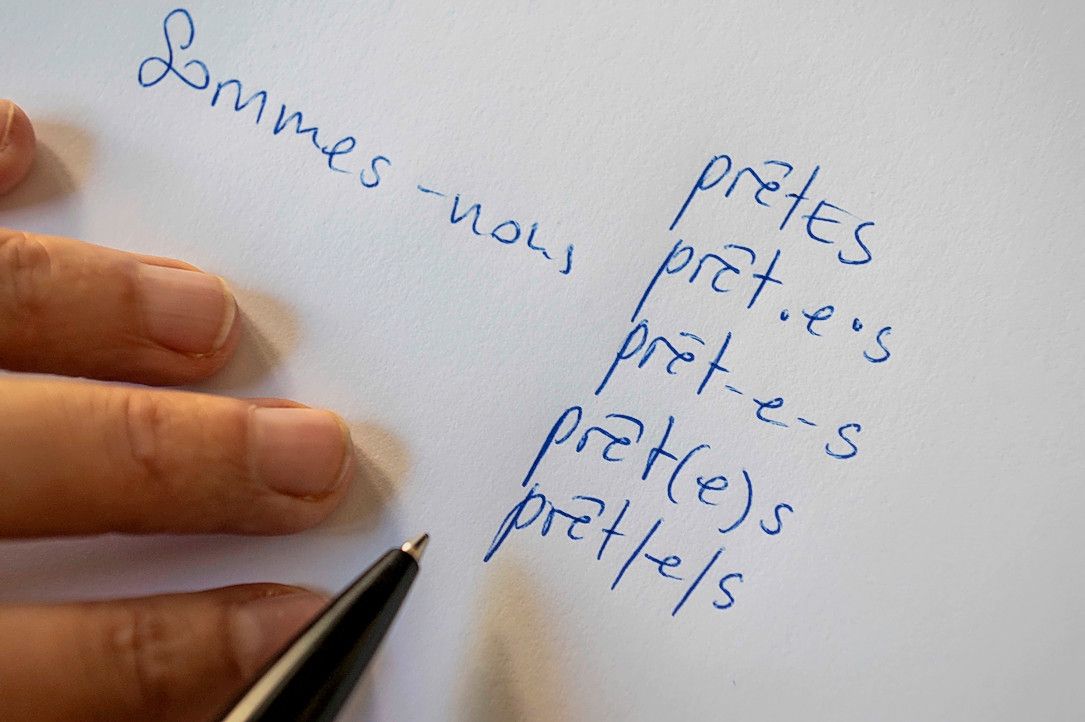 Sommes-nous
prêtES
prêt.e.s
prêt-e-s
prêt(e)s
prêt/e/s